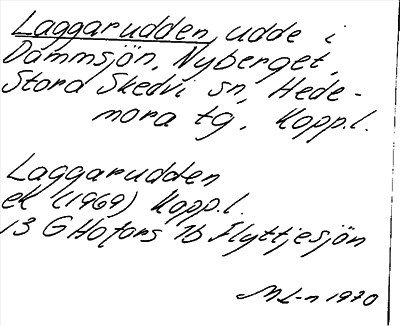 Laggarudden, udde i
Dammsjön, Nyberget,
Stora Skedvi sn, Hede-
mora tg, Kopp.l.
Laggarudden
ek (1969) Kopp.l.
13 G Hofors 7b Flyttjesjön
ML-n 1970